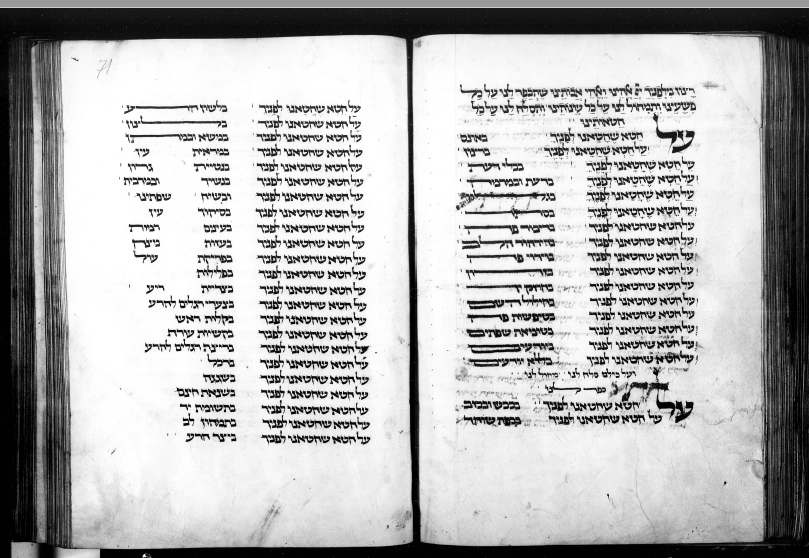 רצון מלפניך יי אלהינו ואלהי אבותינו שתכפר לנו על כל
פשעינו ותמחול לנו על כל עונותינו ותסלח לנו על כל
חטאותינו
על חטא שחטאנו לפניך באונס
על חטא שחטאנו לפניך ברצון
על חטא שחטאנו לפניך בבלי דעת
על חטא שחטאנו לפניך בדעת ובמרמה
על חטא שחטאנו לפניך בגלוי
על חטא שחטאנו לפניך בסתר
על חטא שחטאנו לפניך בדיבור פה
על חטא שחטאנו לפניך בהרהור הלב
על חטא שחטאנו לפניך בוידוי פה
על חטא שחטאנו לפניך בזדון
על חטא שחטאנו לפניך בחוזק יד
על חטא שחטאנו לפניך בחילול השם
על חטא שחטאנו לפניך בטיפשות פה
על חטא שחטאנו לפניך בטומאת שפתים
על חטא שחטאנו לפניך ביודעים
על חטא שחטאנו לפניך בלא יודעים
ועל כולם סלח לנו מחול לנו
כפר לנו
על חטא שחטאנו לפניך בכחש ובכזב
על חטא שחטאנו לפניך בכפת שוחד
71
על חטא שחטאנו לפניך בלשון הרע
על חטא שחטאנו לפניך בלצון
על חטא שחטאנו לפניך במשא ובמתן
על חטא שחטאנו לפניך במראית עין
על חטא שחטאנו לפניך בנטיית גרון
על חטא שחטאנו לפניך בנשך ובמרבית
על חטא שחטאנו לפניך בשיח שפתינו
על חטא שחטאנו לפניך בסיקור עין
על חטא שחטאנו לפניך
על חטא שחטאנו לפניך בעזות מצח
על חטא שחטאנו לפניך בפריקת עול
על חטא שחטאנו לפניך בפלילות
על חטא שחטאנו לפניך בצדיית ריע
על חטא שחטאנו לפניך בצעדי רגלים להרע
על חטא שחטאנו לפניך בקלות ראש
על חטא שחטאנו לפניך בקשיות עורף
על חטא שחטאנו לפניך בריצת רגלים להרע
על חטא שחטאנו לפניך ברכל
על חטא שחטאנו לפניך בשגגה
על חטא שחטאנו לפניך בשנאת חנם
על חטא שחטאנו לפניך בתשומת יד
על חטא שחטאנו לפניך בתמהון לב
על חטא שחטאנו לפניך ביצר הרע